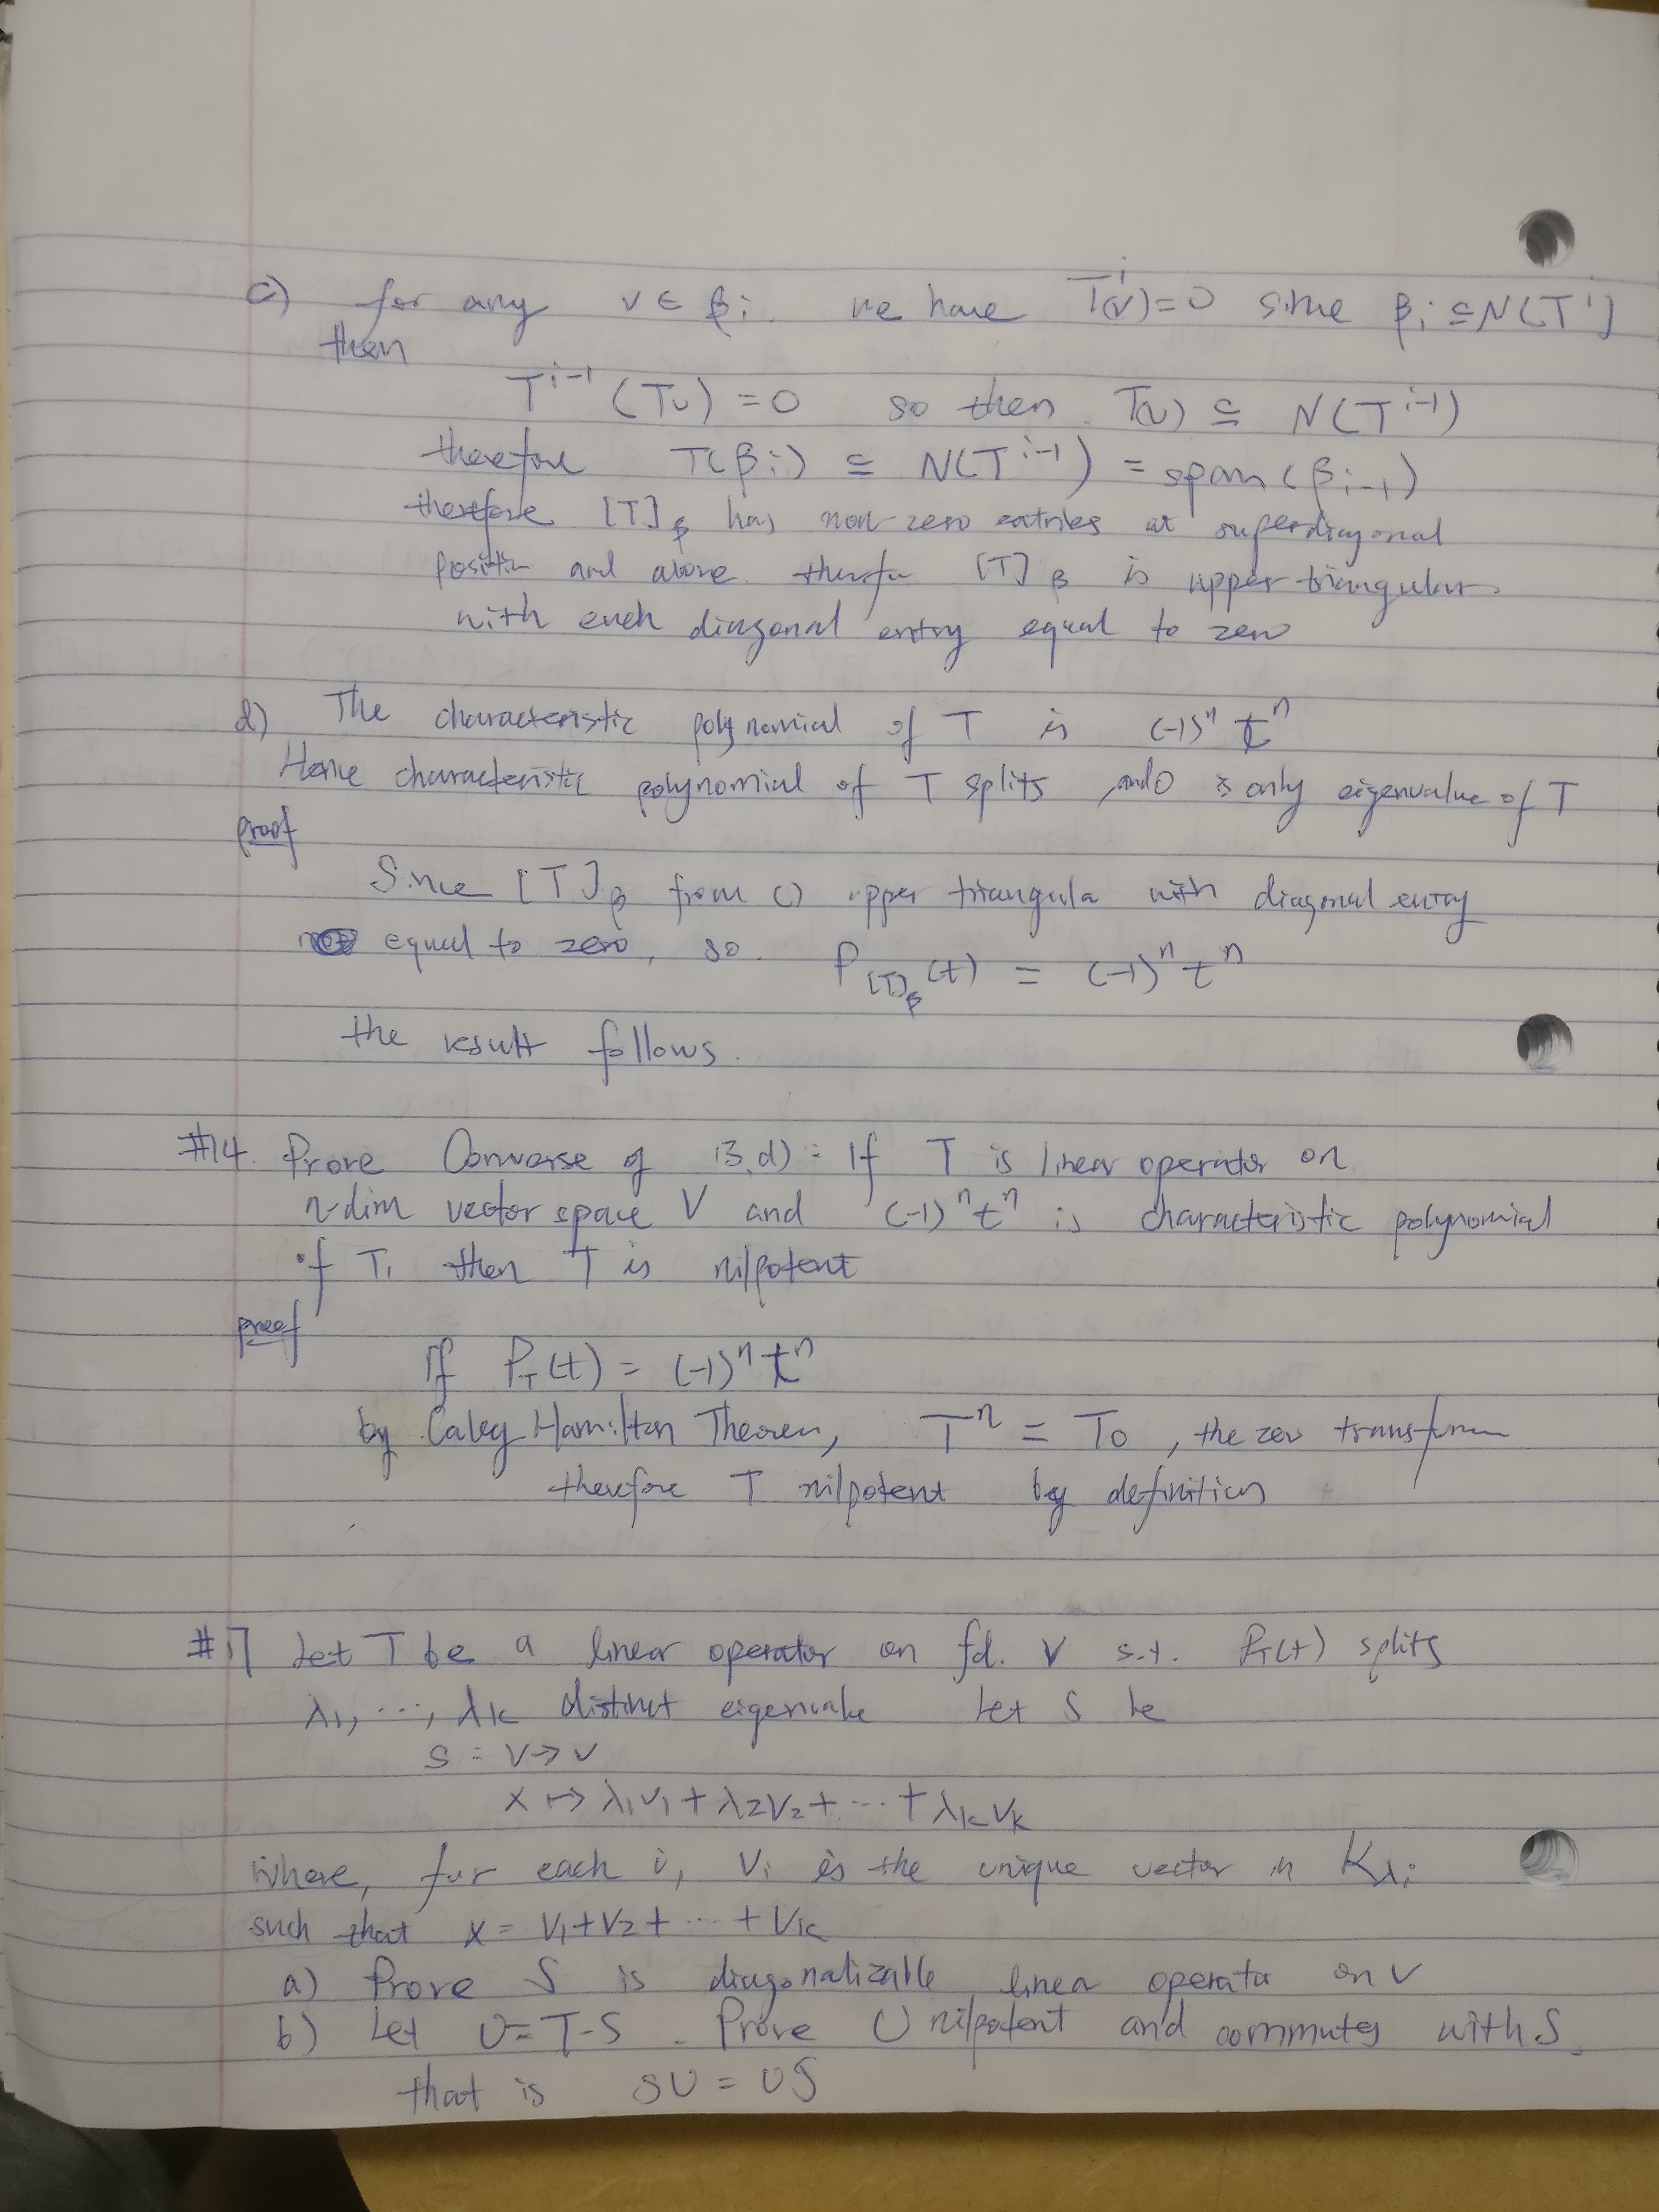 c) for any v ∈ βi. we have T^i(v)=0 since βi ⊆ N(T^i)
then
T^{i-1}(Tv) = 0 so then T(v) ⊆ N(T^{i-1})
therefore T(βi) ⊆ N(T^{i-1}) = span(β_{i-1})
therefore [T]β has non-zero entries at superdiagonal
position and above. therefore [T]β is upper triangular
with each diagonal entry equal to zero
d) The characteristic polynomial of T is (-1)^n t^n
Hence characteristic polynomial of T splits, and 0 is only eigenvalue of T
proof
Since [T]β from c) upper triangula with diagonal entry
equal to zero, so. P_{[T]β}(t) = (-1)^n t^n
the result follows.
#14. Prove Converse of 13.d): If T is linear operator on
n-dim vector space V and (-1)^n t^n is characteristic polynomial
of T, then T is nilpotent
proof
If P_T(t) = (-1)^n t^n
by Caley Hamilton Theorem, T^n = T_0, the zero transform
therefore T nilpotent by definition
#17 Let T be a linear operator on fd. V s.t. P_T(t) splits
λ1, ..., λk distinct eigenvalue Let S be
S: V → V
x ↦ λ1v1 + λ2v2 + ... + λkvk
where, for each i, vi is the unique vector in K_{λi}
such that x = v1 + v2 + ... + vk
a) Prove S is diagonalizable linear operator on V
b) Let U = T-S. Prove U nilpotent and commutes with S,
that is SU = US